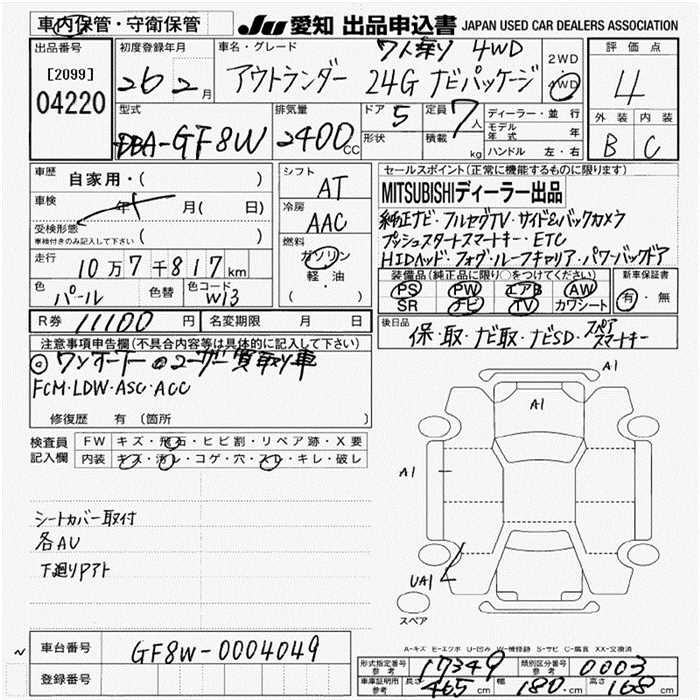 車内保管・守衛保管 JU 愛知 出品申込書 JAPAN USED CAR DEALERS ASSOCIATION
出品番号 [2099] 04220
初度登録年月 26 2月
車名・グレード 7人乗り 4WD
アウトランダー 24G ナビパッケージ
2WD
4WD
評価点 4
外装 内装
B C
型式 DBA-GF8W
排気量 2400CC
ドア 5
形状
定員 7人
積載 kg
ディーラー・並行
モデル年式 年
ハンドル 左・右
車歴 自家用・( )
車検 年 月( 日)
受検形態 ( )
車検付きのみ記入して下さい
走行 10万7千817km
色 パール 色替 色コード W13
シフト AT
冷房 AAC
燃料 ガソリン
軽・油
( )
セールスポイント(正常に機能するものに限ります)
MITSUBISHIディーラー出品
純正ナビ・フルセグTV・サイド&バックカメラ
プッシュスタートスマートキー・ETC
HIDヘッド・フォグ・ルーフキャリア・パワーバックドア
装備品(純正品に限り○をつけてください)
PS PW エアB AW
SR ナビ TV カワシート
新車保証書
有・無
R券 11100円 名変期限 月 日
後日品 保・取・ナビ取・ナビSD・スペアスマートキー
注意事項申告欄(不具合内容等は具体的に記入して下さい)
◎ワンオーナー ◎ユーザー買取り車
FCM・LDW・ASC・ACC
修復歴 有 (箇所 )
検査員記入欄
FW キズ・飛石・ヒビ割・リペア跡・X要
内装 キズ・汚レ・コゲ・穴・スレ・キレ・破レ
シートカバー取付
各AU
下廻りPアト
A1
A1
A1
UA1
スペア
A-キズ E-エクボ U-凹み W-補修跡 S-サビ C-腐食 XX-交換済
車台番号 GF8W-0004049
登録番号
形式指定番号 参考 17349 類別区分番号 参考 0003
車庫証明用 参考 長さ 465cm 幅 180cm 高さ 168cm